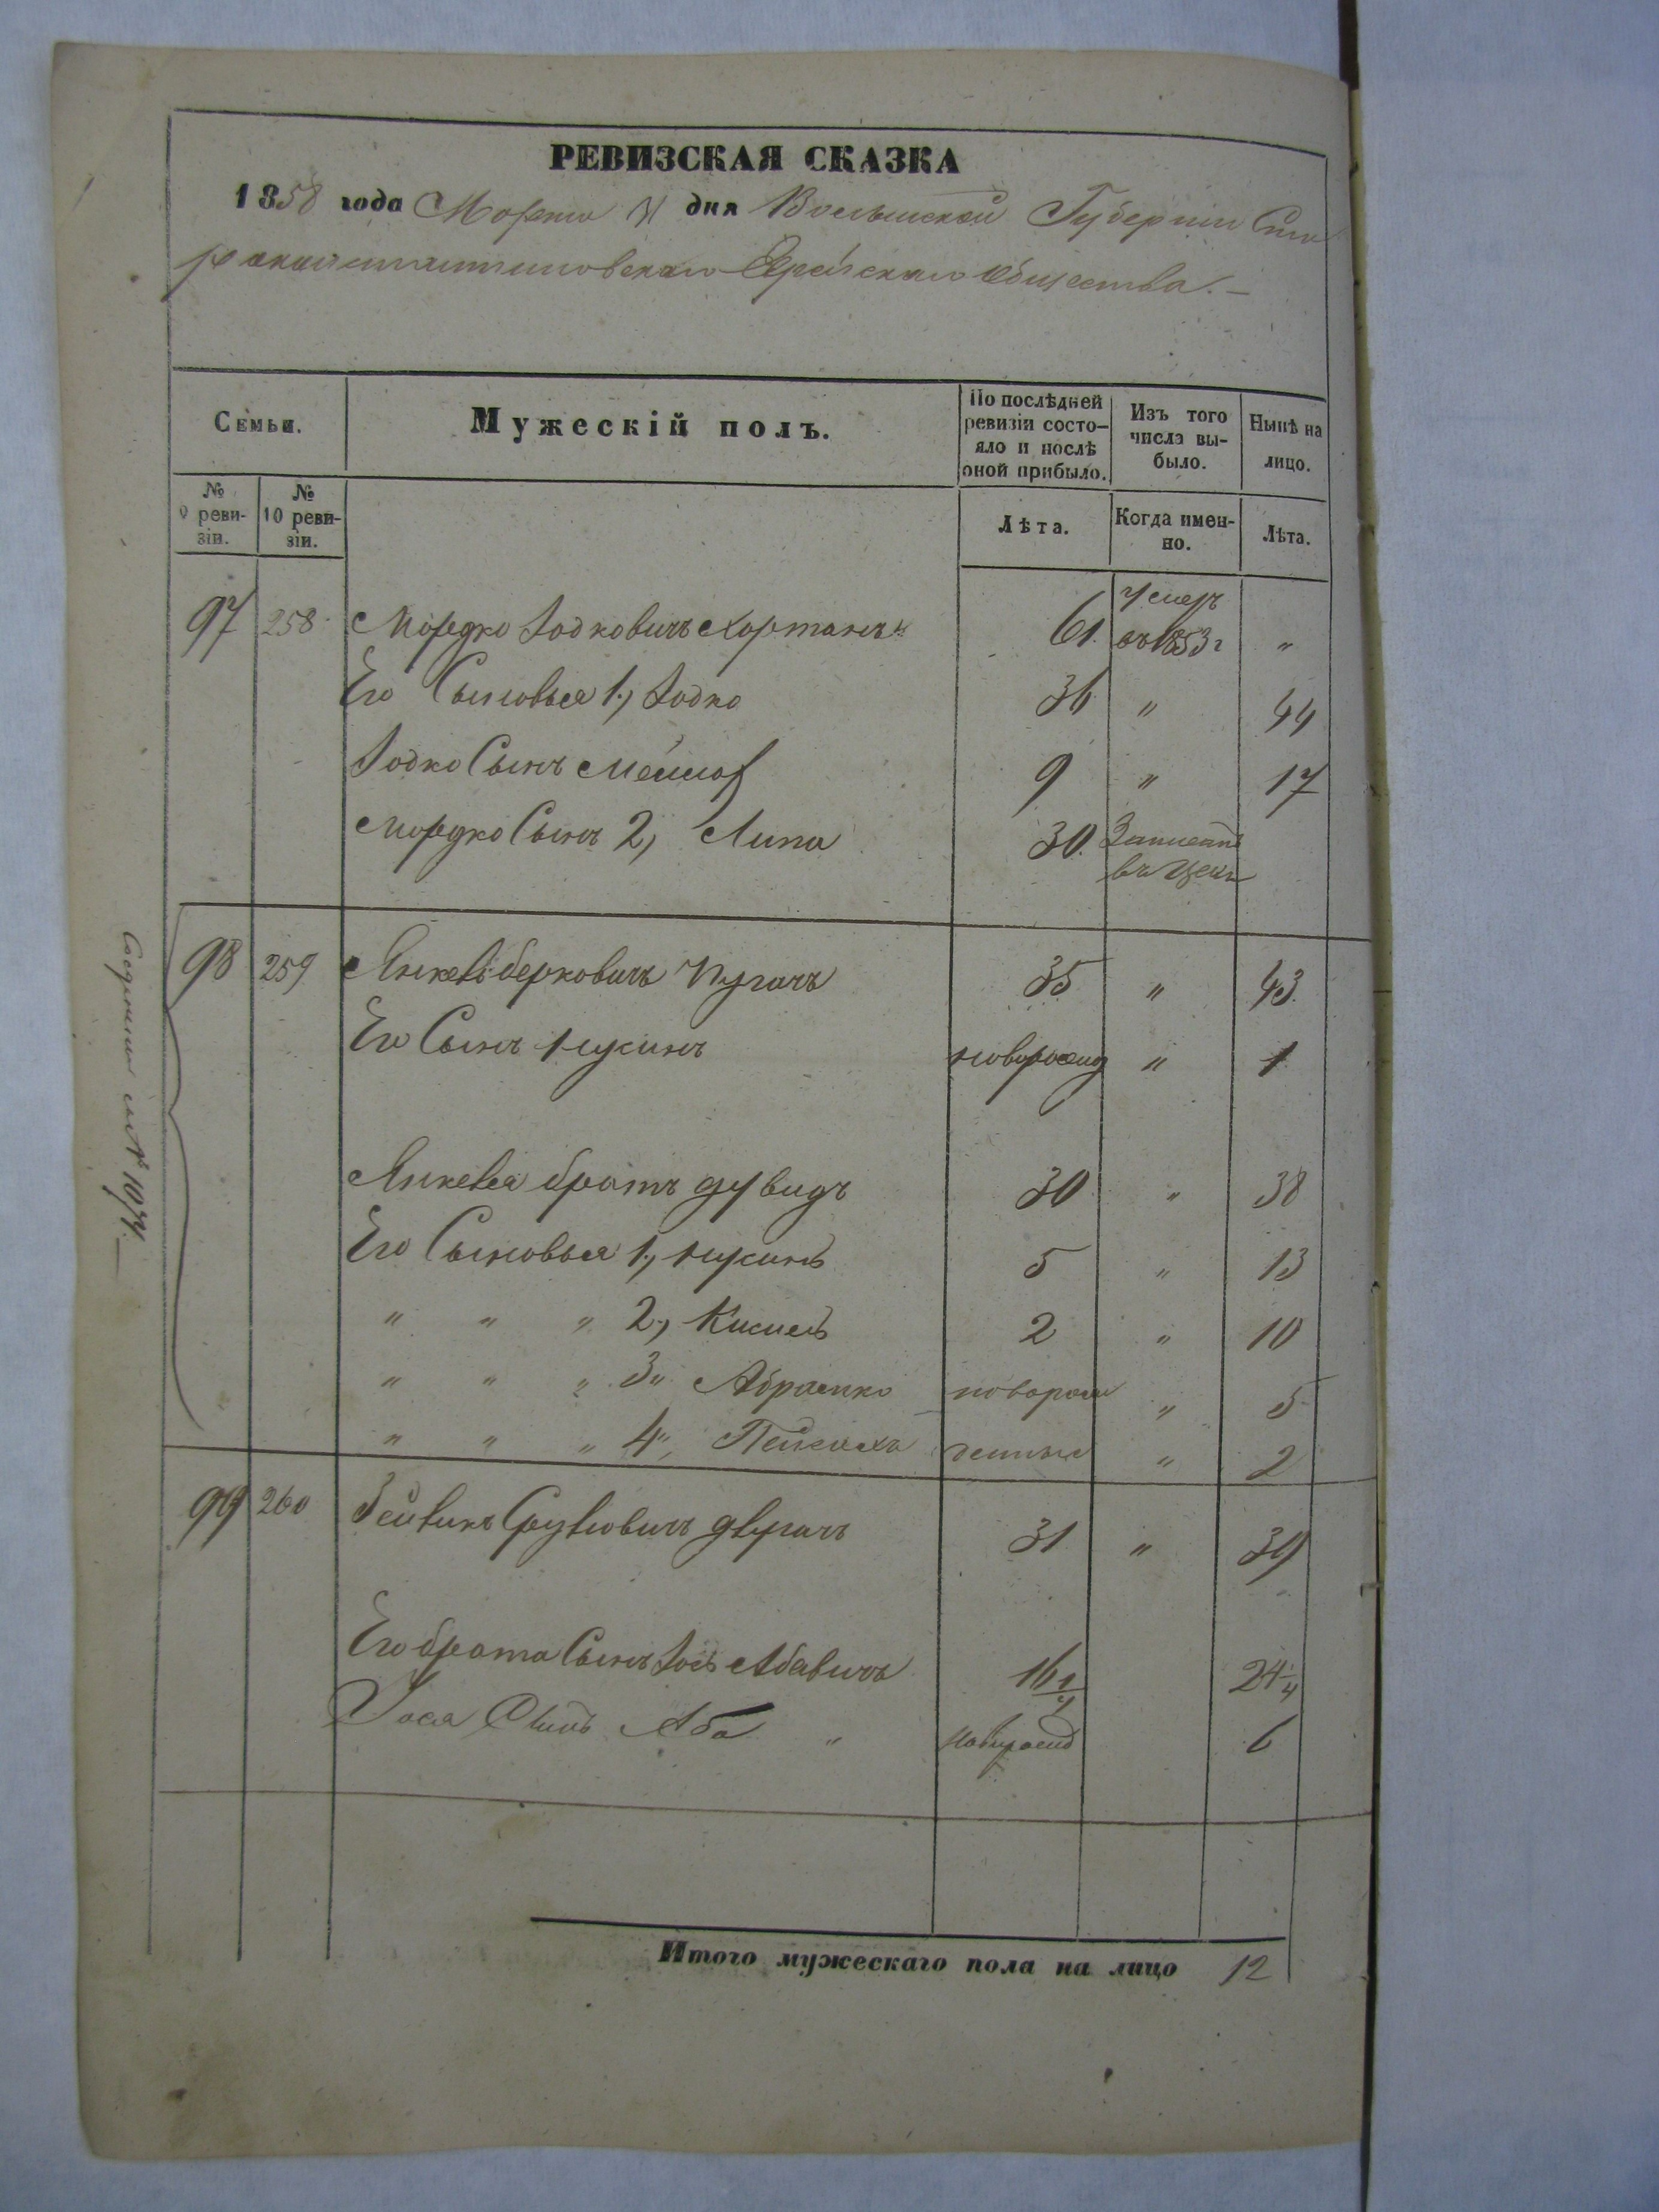 РЕВИЗСКАЯ СКАЗКА
1858 года Марта 31 дня Волынской Губернии Ста
роконстантиновскаго Еврейскаго Общества.-
Семьи.
Мужескій полъ.
По послѣдней ревизіи состо-яло и послѣ оной прибыло.
Изъ того числа вы-было.
Нынѣ на лицо.
№ 9 реви-зіи.
№ 10 реви-зіи.
Лѣта.
Когда имен-но.
Лѣта.
97 258 Мордко Іодковичъ Хортанъ 61. Умеръ въ 1853 г "
Его Сыновья 1., Іодко 36 " 44
Іодко Сынъ Мейлоф 9 " 17
Мордко Сынъ 2, Липа 30. Записанъ въ цехъ
98 259 Янкель Берковичъ Пугачъ 35 " 43.
Его Сынъ Нусинъ новорожд " 1
Янкеля братъ Дувидъ 30 " 38
Его Сыновья 1., Нусинъ 5 " 13
" " " 2., Кисиль 2 " 10
" " " 3" Абрамко новорож " 5
" " " 4", Пейсахъ денные " 2
99 260 Зейликъ Срулiовичъ 31 " 39
Его брата Сынъ Іось Абавичъ 16 1/4 24 1/4
Іося Сынъ Аба " новорожд 6
Итого мужескаго пола на лицо 12
№ 1074.